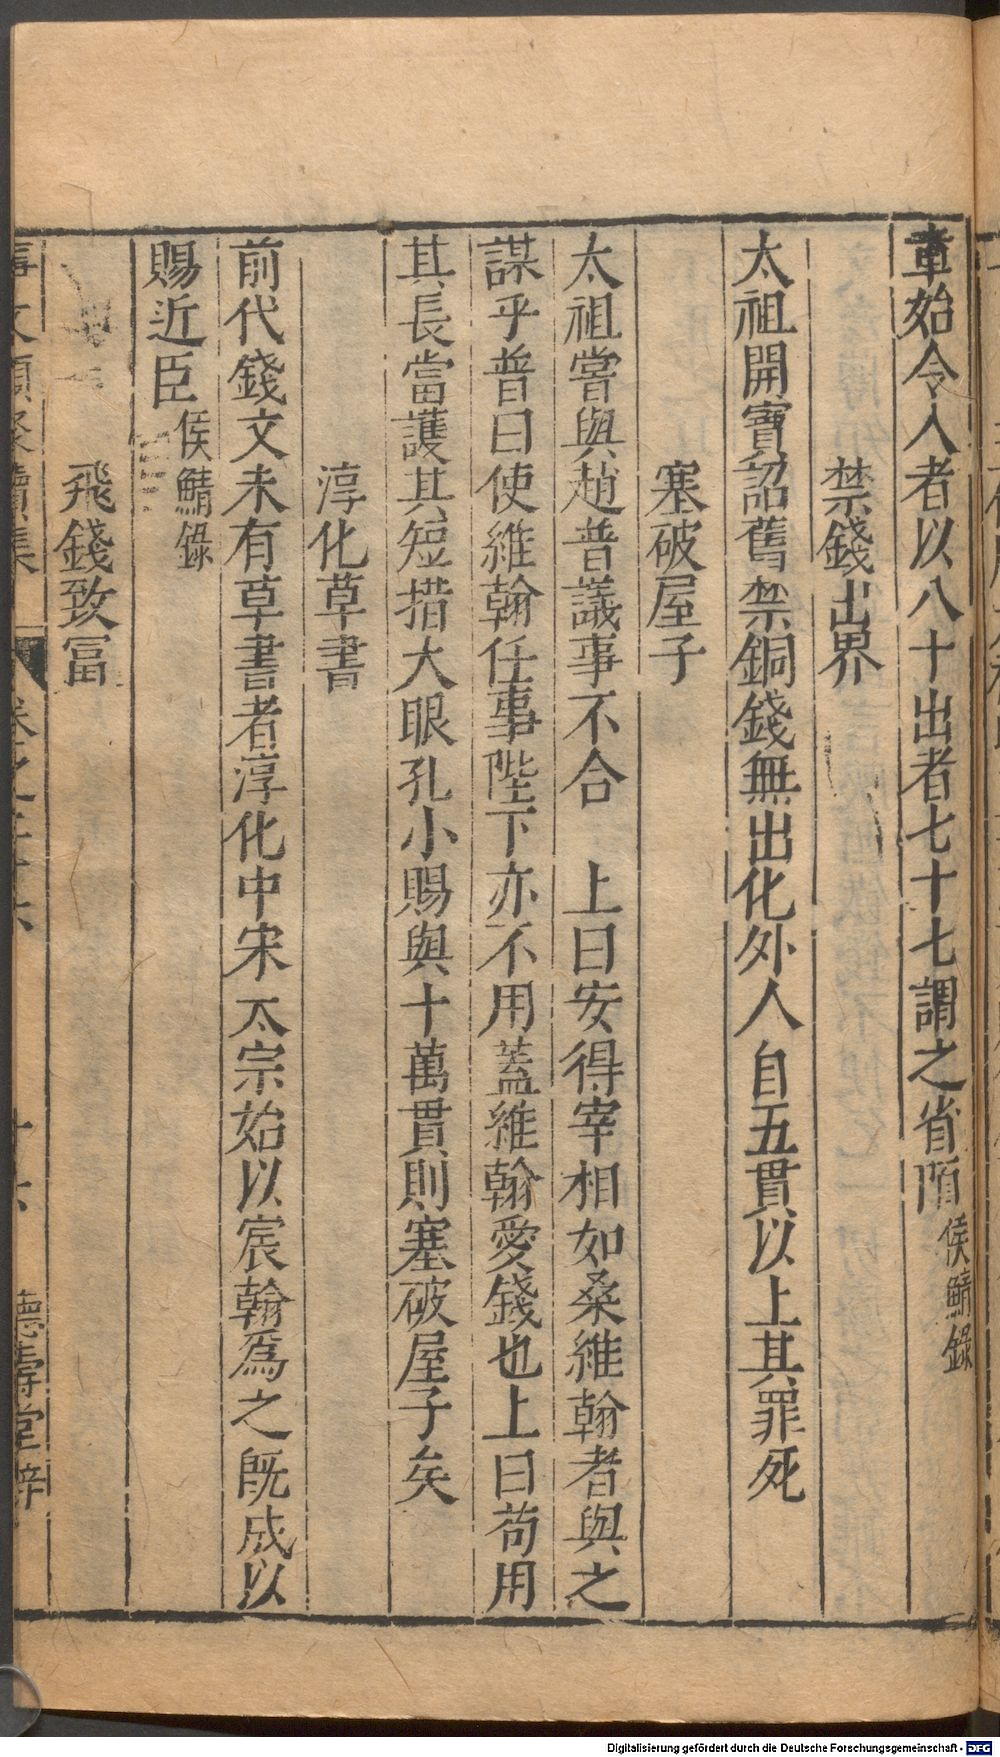 章始令入者以八十出者七十七謂之省陌侯鯖錄
禁錢出界
太祖開寶詔舊禁銅錢無出化外人自五貫以上其罪死
塞破屋子
太祖嘗與趙普議事不合　上曰安得宰相如桑維翰者與之
謀乎普曰使維翰任事陛下亦不用蓋維翰愛錢也上曰苟用
其長當護其短措大眼孔小賜與十萬貫則塞破屋子矣
淳化草書
前代錢文未有草書者淳化中宋太宗始以宸翰爲之既成以
賜近臣侯鯖錄
飛錢致富
事文類聚續集　卷之二十六　十六　德壽堂梓
Digitalisierung gefördert durch die Deutsche Forschungsgemeinschaft - DFG